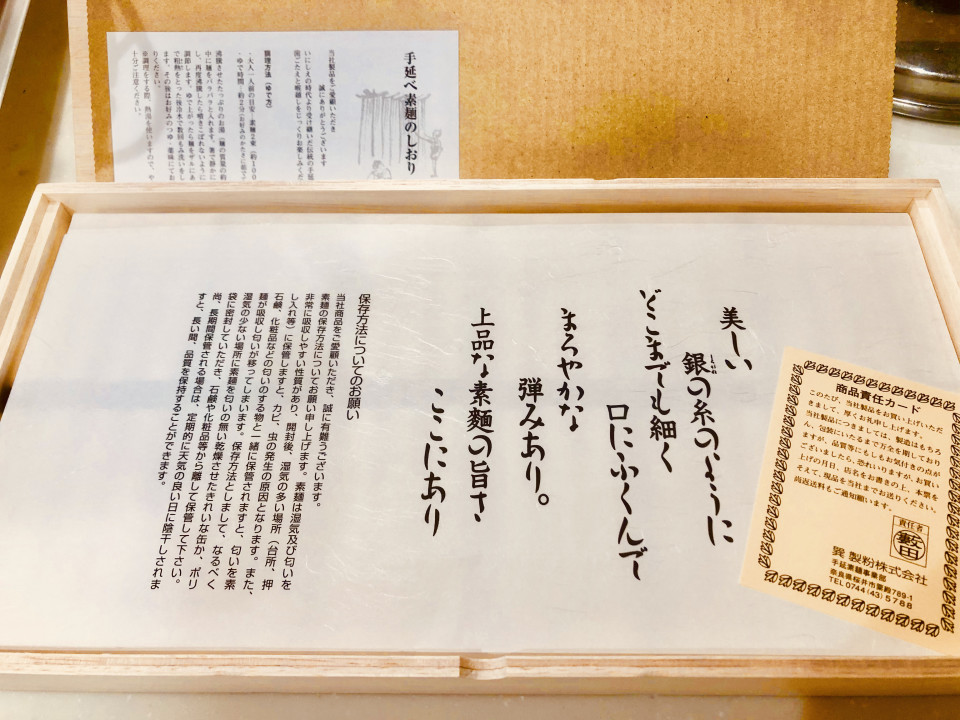 手延べ素麺のしおり
当社製品をご愛顧いただき
誠にありがとうございます
調理方法（ゆで方）
美しい
銀の糸のように
どこまでも細く
口にふくんで
まろやかな
弾みあり。
上品な素麺の旨さ
ここにあり
保存方法についてのお願い
当社商品をご愛顧いただき、誠に有難うございます。
素麺の保存方法についてお願い申し上げます。素麺は湿気及び匂いを
非常に吸収しやすい性質があり、開封後、湿気の多い場所（台所、押
し入れ等）に保管しますと、カビ、虫の発生の原因となります。また、
石鹸、化粧品などの匂いのする物と一緒に保管されますと、匂いを素
麺が吸収し匂いが移ってしまいます。保存方法としまして、なるべく
湿気の少ない場所に素麺を匂いの無い乾燥させたきれいな缶か、ポリ
袋に密封していただき、石鹸や化粧品等から離して保管して下さい。
尚、長期間保管される場合は、定期的に天気の良い日に陰干しされま
すと、長い間、品質を保持することができます。
商品責任カード
このたび、当社製品をお買い上げいただ
きまして、厚くお礼申し上げます。
当社製品につきましては、製造はもちろ
ん、包装にいたるまで万全を期しており
ますが、品質等にもしもお気付きの点が
ございましたら、恐れいりますが、お買い
上げの月日、店名をお書きの上、本票を
そえて、現品を当社までお送りください。
尚返送料もご通知願います。
責任者
藪田
巽製粉株式会社
手延素麺事業部
奈良県桜井市粟殿789-1
TEL 0744 (43) 5788